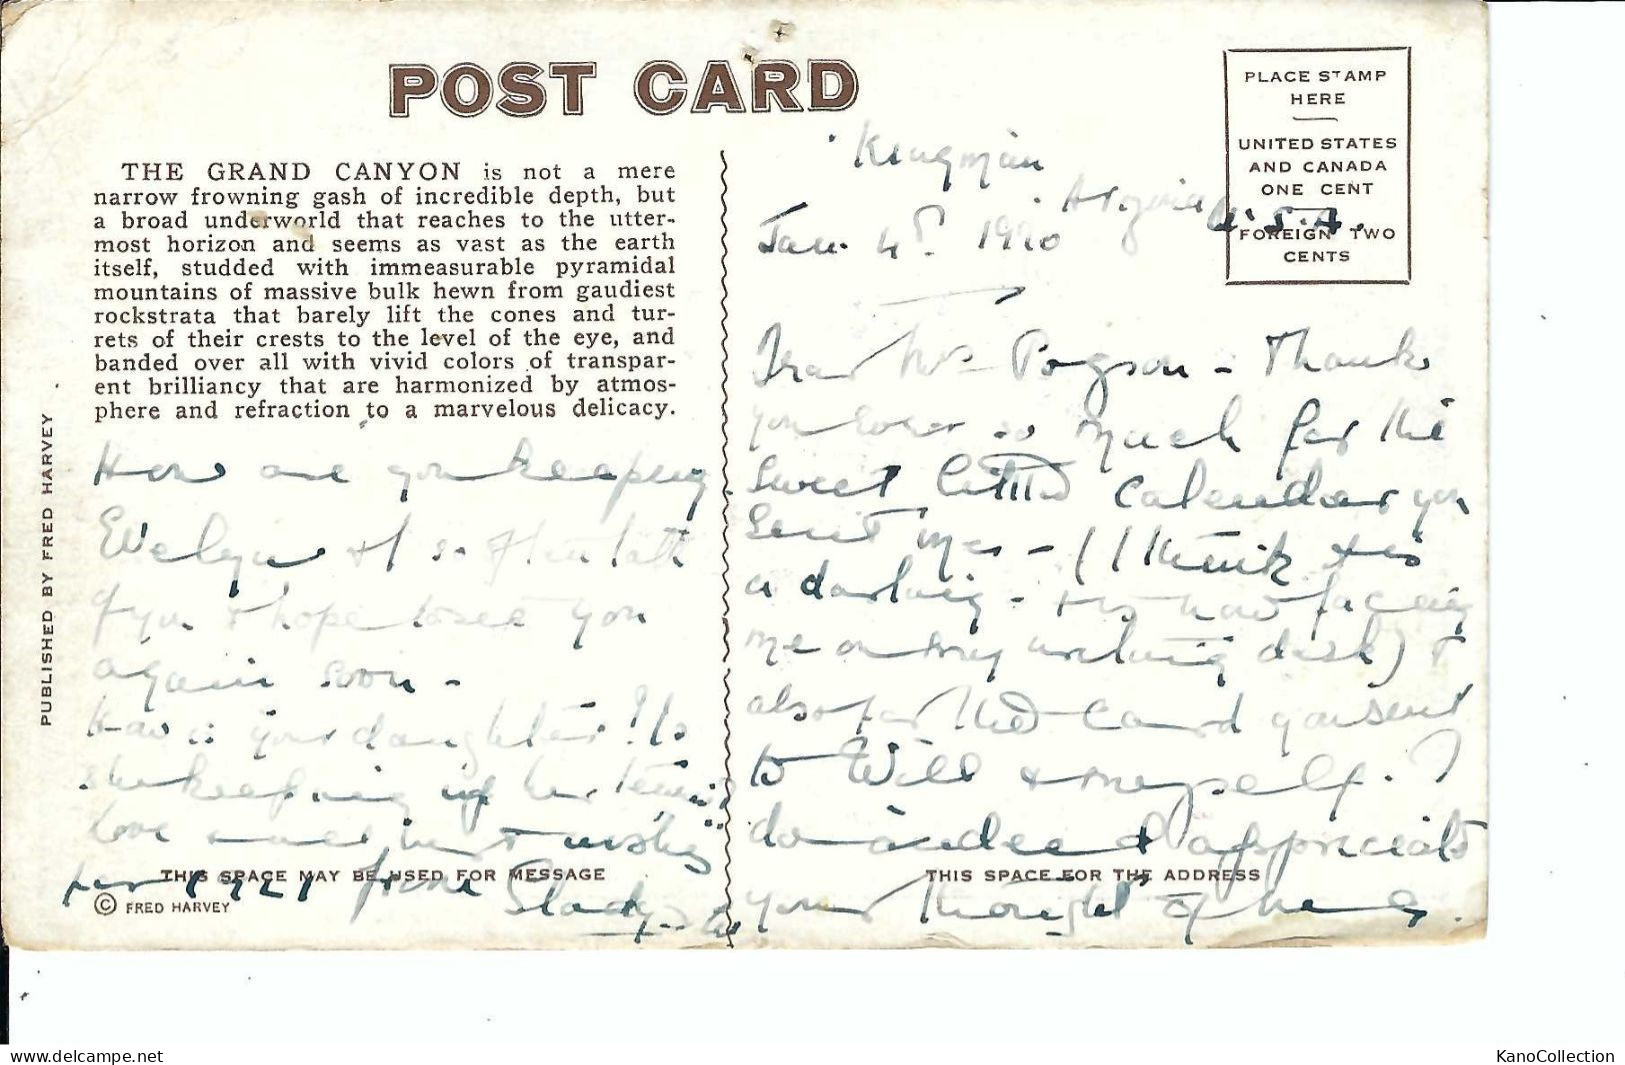 POST CARD
PLACE STAMP
HERE
UNITED STATES
AND CANADA
ONE CENT
FOREIGN TWO
CENTS
THE GRAND CANYON is not a mere
narrow frowning gash of incredible depth, but
a broad underworld that reaches to the utter-
most horizon and seems as vast as the earth
itself, studded with immeasurable pyramidal
mountains of massive bulk hewn from gaudiest
rockstrata that barely lift the cones and tur-
rets of their crests to the level of the eye, and
banded over all with vivid colors of transpar-
ent brilliancy that are harmonized by atmos-
phere and refraction to a marvelous delicacy.
PUBLISHED BY FRED HARVEY
Kingman
Arizona U.S.A.
Jan. 4th. 1920
Dear Mrs Pogson - Thank
you ever so much for the
sweet little calendar you
sent me - (I think it is
a darling - its now facing
me on my writing desk) &
also for the card you sent
to Will & myself. I
do indeed appreciate
your thought of me.
How are you keeping
Evelyn & I so often talk
of you & hope to see you
again soon -
How is your daughter? Is
she keeping up her tennis
Love & all best wishes
for 1921 from Gladys
THIS SPACE MAY BE USED FOR MESSAGE
THIS SPACE FOR THE ADDRESS
© FRED HARVEY
www.delcampe.net
KanoCollection